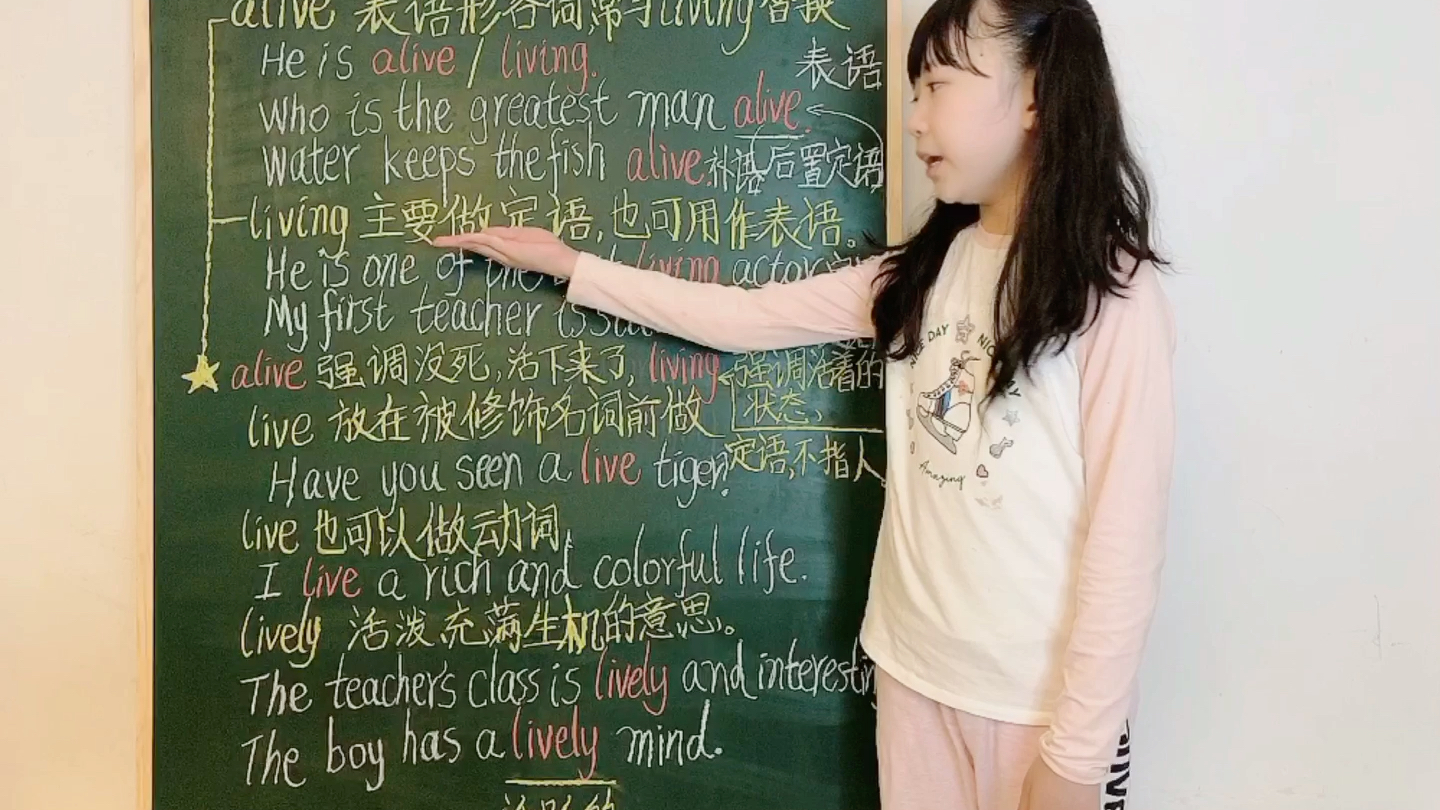 alive 表语形容词,常与living替换
He is alive / living.
表语
Who is the greatest man alive.
Water keeps the fish alive. 补语 后置定语
living 主要做定语,也可用作表语。
He is one of the living actor
My first teacher is
alive 强调没死,活下来了, living 强调活着的
状态、
live 放在被修饰名词前做
定语,不指人
Have you seen a live tiger?
live 也可以做动词,
I live a rich and colorful life.
lively 活泼充满生机的意思。
The teacher's class is lively and interesting
The boy has a lively mind.
NICE DAY NICE DAY
Amazing